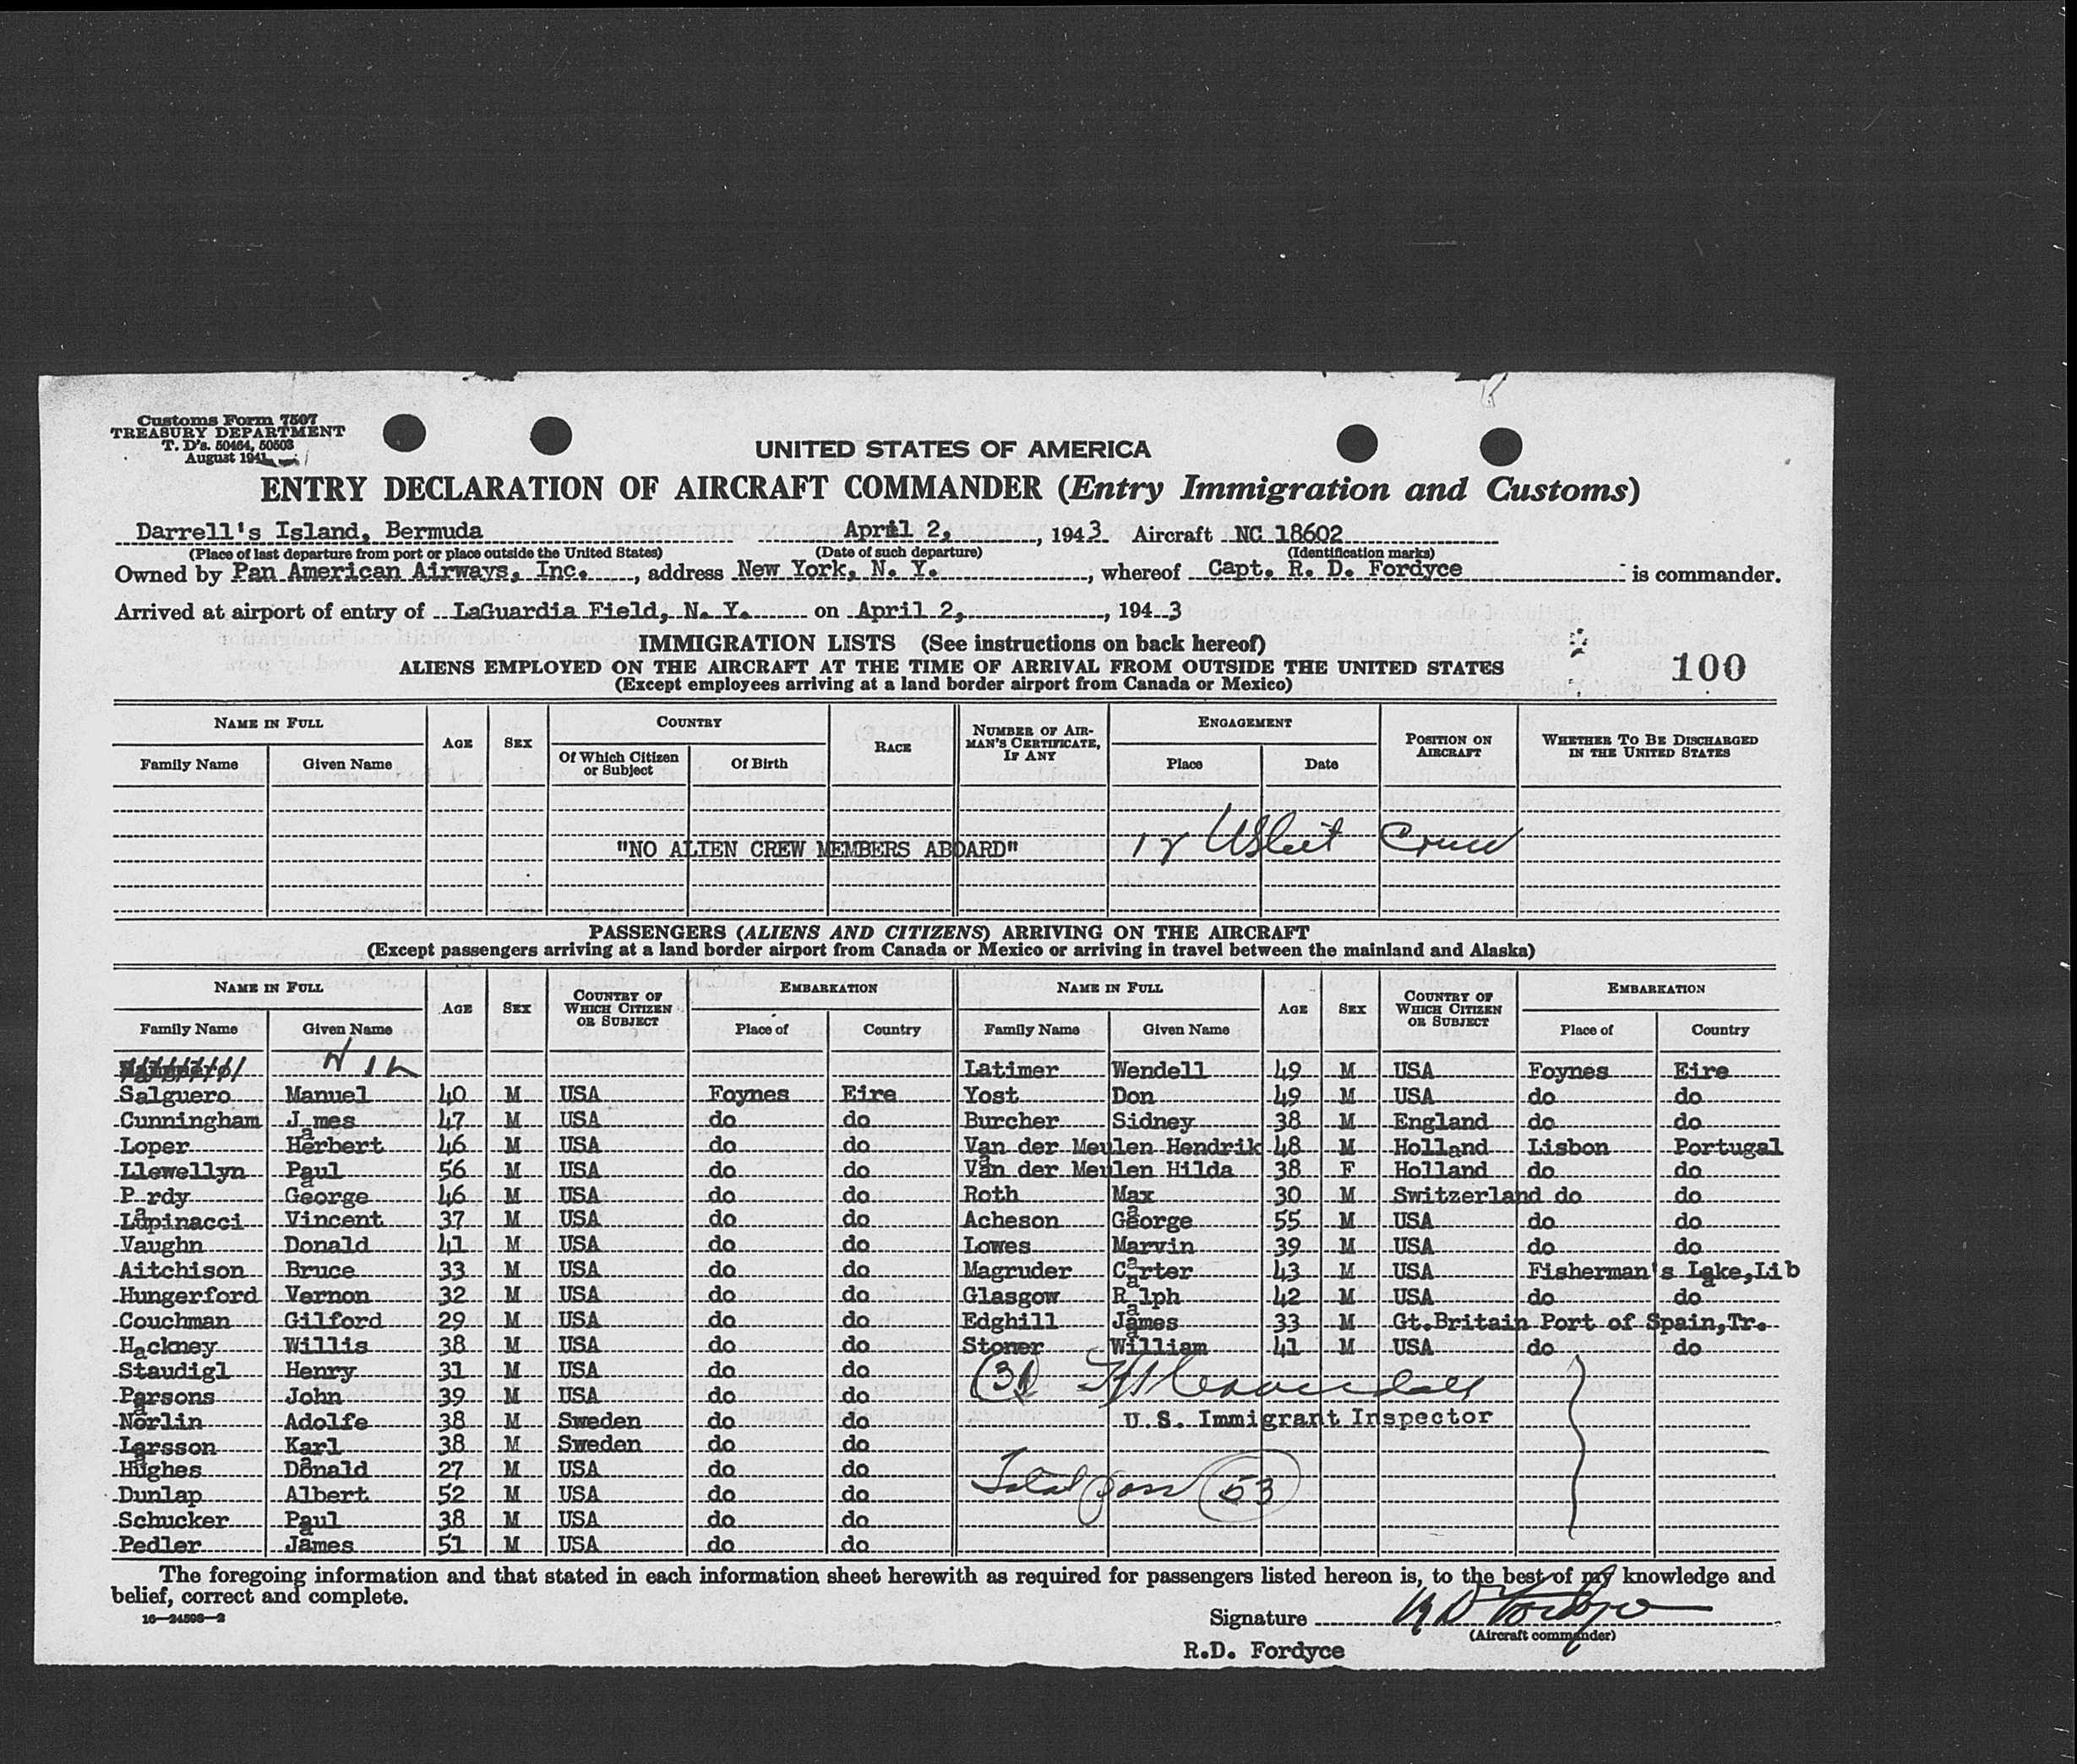 Customs Form 7507
TREASURY DEPARTMENT
T. D's. 50464, 50503
August 1941
UNITED STATES OF AMERICA
ENTRY DECLARATION OF AIRCRAFT COMMANDER (Entry Immigration and Customs)
Darrell's Island, Bermuda April 2, , 1943 Aircraft NC 18602
(Place of last departure from port or place outside the United States) (Date of such departure) (Identification marks)
Owned by Pan American Airways, Inc. , address New York, N. Y. , whereof Capt. R. D. Fordyce is commander.
Arrived at airport of entry of LaGuardia Field, N. Y. on April 2, , 1943
IMMIGRATION LISTS (See instructions on back hereof)
ALIENS EMPLOYED ON THE AIRCRAFT AT THE TIME OF ARRIVAL FROM OUTSIDE THE UNITED STATES
(Except employees arriving at a land border airport from Canada or Mexico)
100
NAME IN FULL AGE SEX COUNTRY RACE NUMBER OF AIRMAN'S CERTIFICATE, IF ANY ENGAGEMENT POSITION ON AIRCRAFT WHETHER TO BE DISCHARGED IN THE UNITED STATES
Family Name Given Name Of Which Citizen or Subject Of Birth Place Date
"NO ALIEN CREW MEMBERS ABOARD" 12 UScit Crew
PASSENGERS (ALIENS AND CITIZENS) ARRIVING ON THE AIRCRAFT
(Except passengers arriving at a land border airport from Canada or Mexico or arriving in travel between the mainland and Alaska)
NAME IN FULL AGE SEX COUNTRY OF WHICH CITIZEN OR SUBJECT EMBARKATION NAME IN FULL AGE SEX COUNTRY OF WHICH CITIZEN OR SUBJECT EMBARKATION
Family Name Given Name Place of Country Family Name Given Name Place of Country
Latimer Wendell 49 M USA Foynes Eire
Salguero Manuel 40 M USA Foynes Eire Yost Don 49 M USA do do
Cunningham James 47 M USA do do Burcher Sidney 38 M England do do
Loper Herbert 46 M USA do do Van der Meulen Hendrik 48 M Holland Lisbon Portugal
Llewellyn Paul 56 M USA do do Van der Meulen Hilda 38 F Holland do do
Pardy George 46 M USA do do Roth Max 30 M Switzerland do do
Lupinacci Vincent 37 M USA do do Acheson George 55 M USA do do
Vaughn Donald 41 M USA do do Lowes Marvin 39 M USA do do
Aitchison Bruce 33 M USA do do Magruder Carter 43 M USA Fisherman's Lake, Lib
Hungerford Vernon 32 M USA do do Glasgow Ralph 42 M USA do do
Couchman Gilford 29 M USA do do Edghill James 33 M Gt.Britain Port of Spain, Tr.
Hackney Willis 38 M USA do do Stoner William 41 M USA do do
Staudigl Henry 31 M USA do do (31)
Parsons John 39 M USA do do
Norlin Adolfe 38 M Sweden do do U. S. Immigrant Inspector
Larsson Karl 38 M Sweden do do
Hughes Donald 27 M USA do do
Dunlap Albert 52 M USA do do Total pass 53
Schucker Paul 38 M USA do do
Pedler James 51 M USA do do
The foregoing information and that stated in each information sheet herewith as required for passengers listed hereon is, to the best of my knowledge and
belief, correct and complete.
16—24598-2
Signature R D Fordyce
(Aircraft commander)
R.D. Fordyce